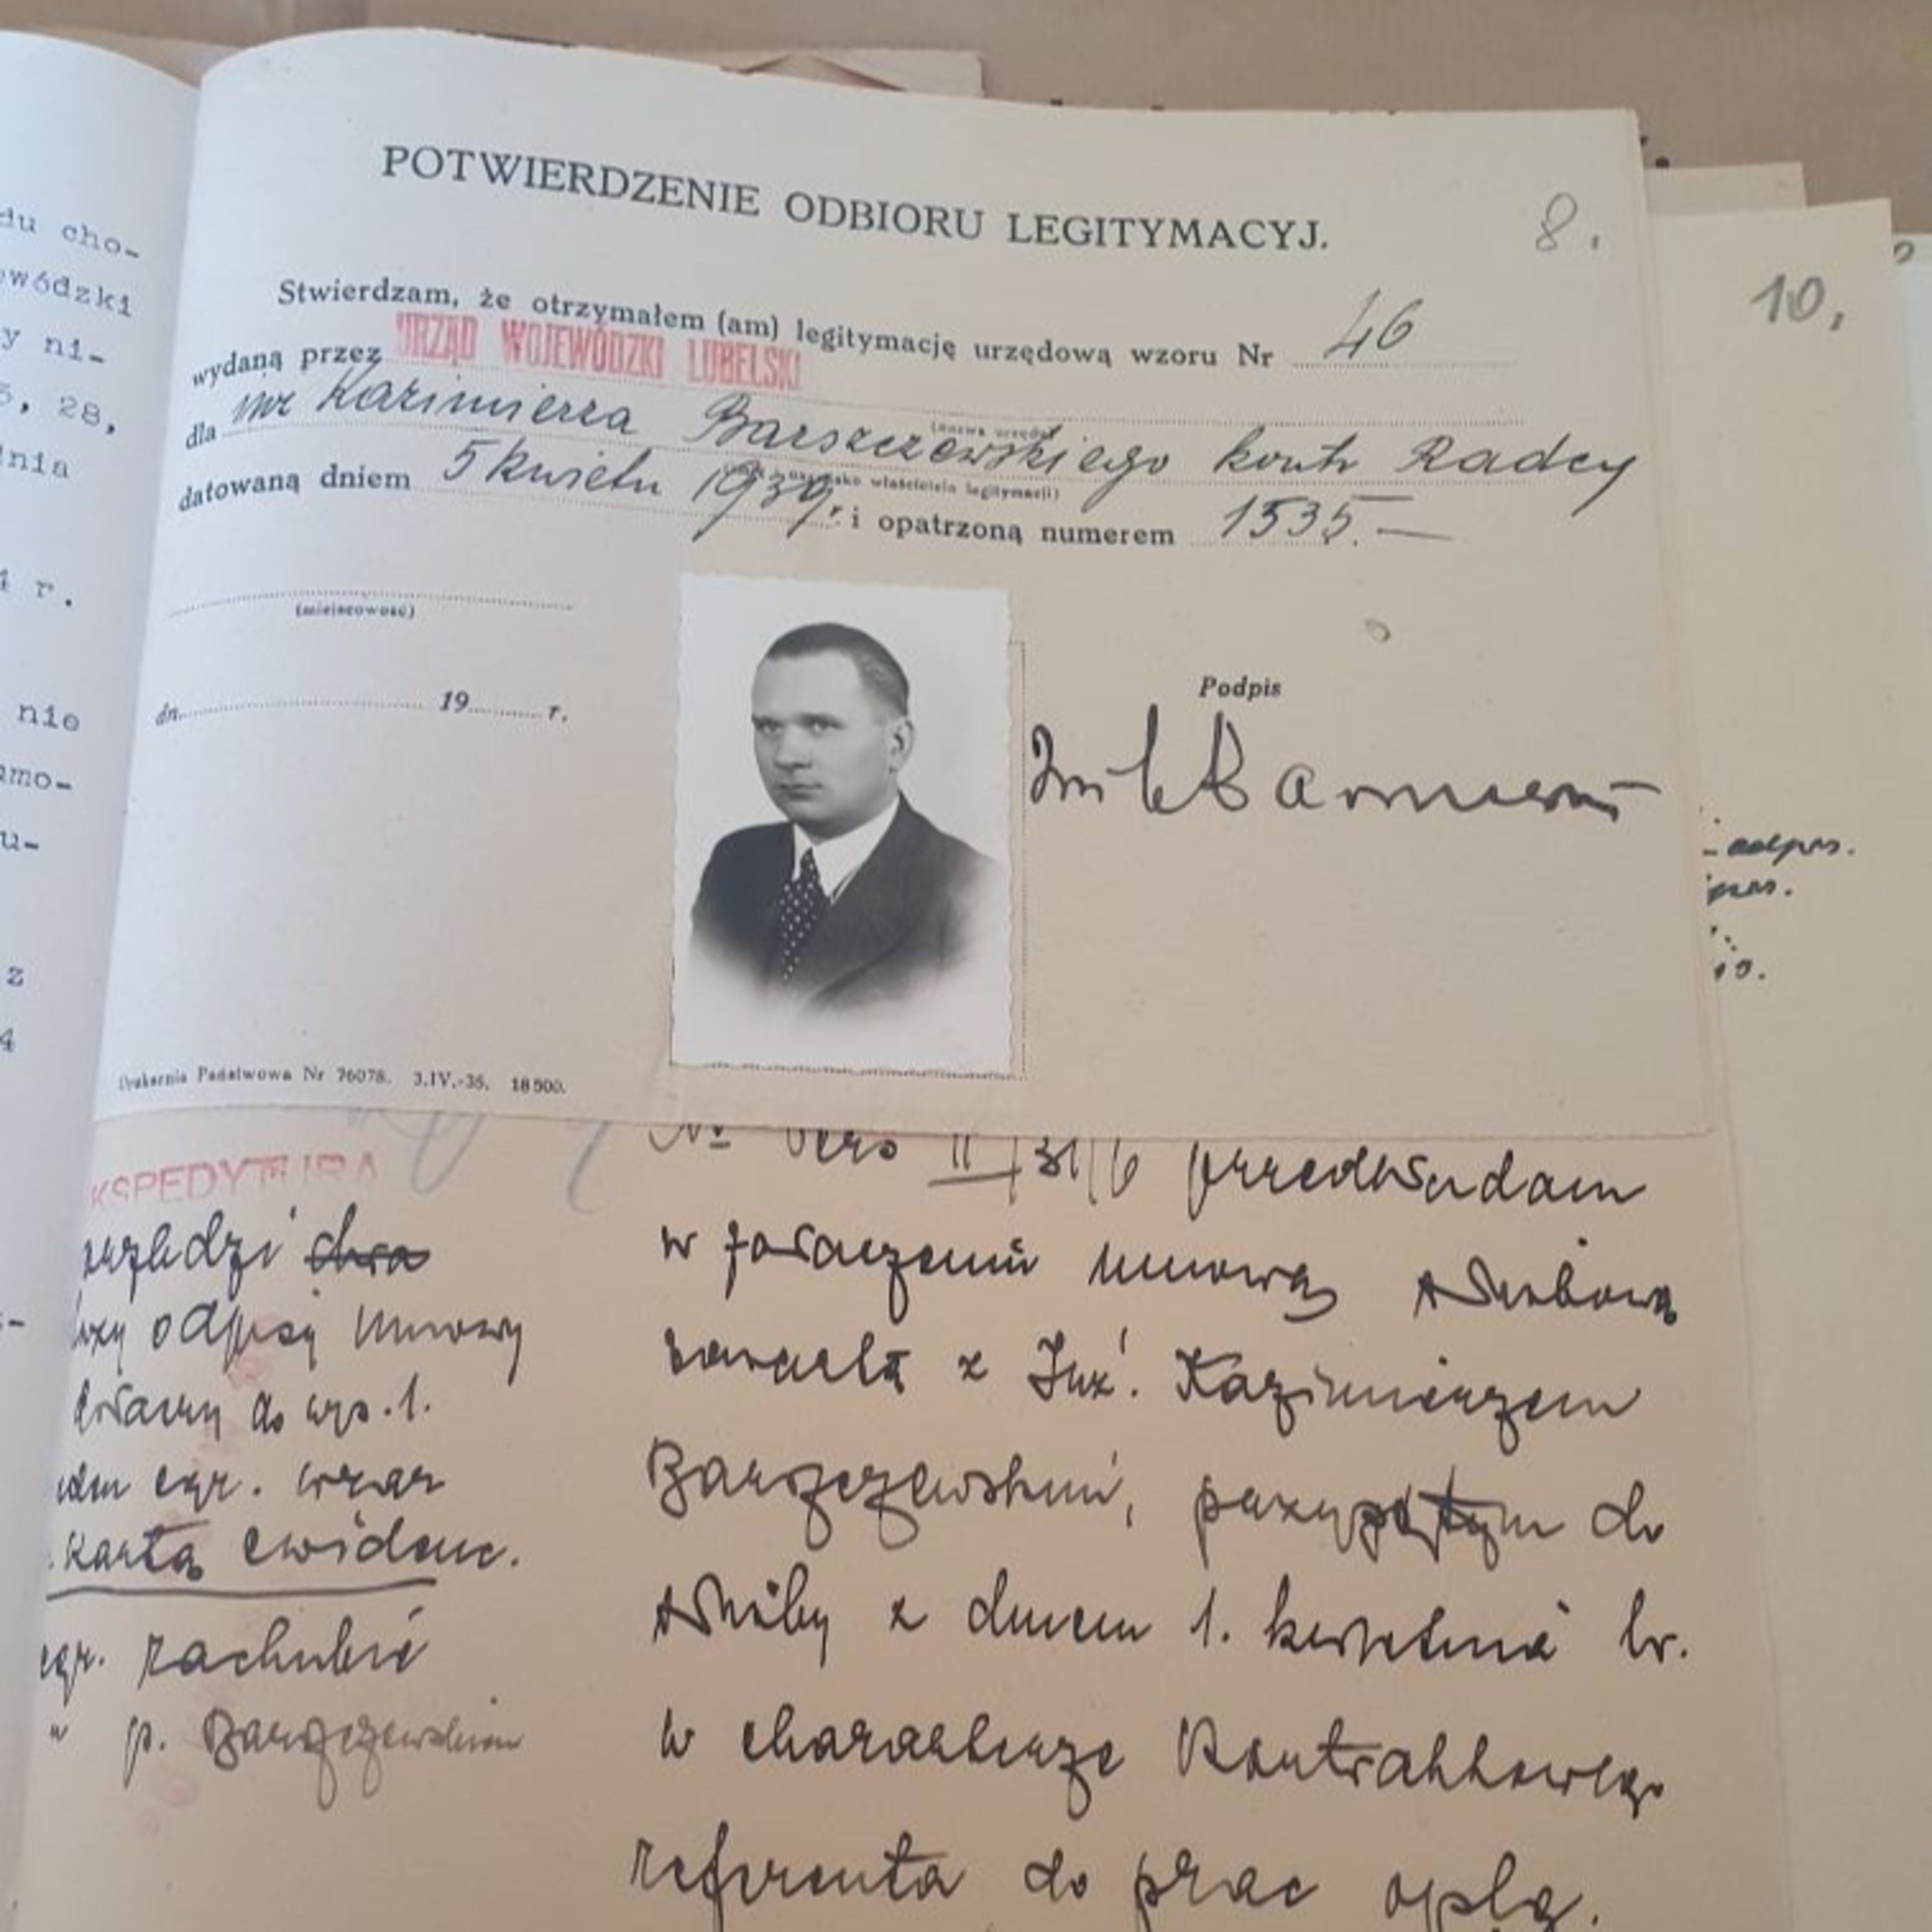 du cho-
wódzki
y ni-
5, 28,
dnia
4 r.
nie
amo-
u-
z
4
POTWIERDZENIE ODBIORU LEGITYMACYJ.
8.
10,
Stwierdzam, że otrzymałem (am) legitymację urzędową wzoru Nr 46
wydaną przez URZĄD WOJEWÓDZKI LUBELSKI
(nazwa urzędu)
dla inż Kazimierza Barszczewskiego kontr Radcy
właściciela legitymacji)
datowaną dniem 5 kwietn 1939 r. i opatrzoną numerem 1535.—
(miejscowość)
dn. 19 r.
Podpis
Drukarnia Państwowa Nr 76078. 3.IV.-35. 18 500.
odpis.
KSPEDYTURA
odpisy umowy
do wyp. 1.
egz. wraz
kartą ewidenc.
egz. rachubie
" p. Barszczewskiemu
Nr Pers II/31/6 przedkładam
w załączeniu umowę służbową
zawartą z Inż. Kazimierzem
Barszczewskim, przyjętym do
służby z dniem 1. kwietnia br.
w charakterze Kontraktowego
referenta do prac oplg.